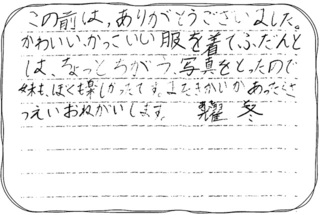 この前は,ありがとうございました。
かわいい、かっこいい服を着てふだんと
は、ちょっとちがう、写真をとったので
妹も、ぼくも楽しかったです。またきかいがあったらさ
つえいおねがいします。 耀 冬